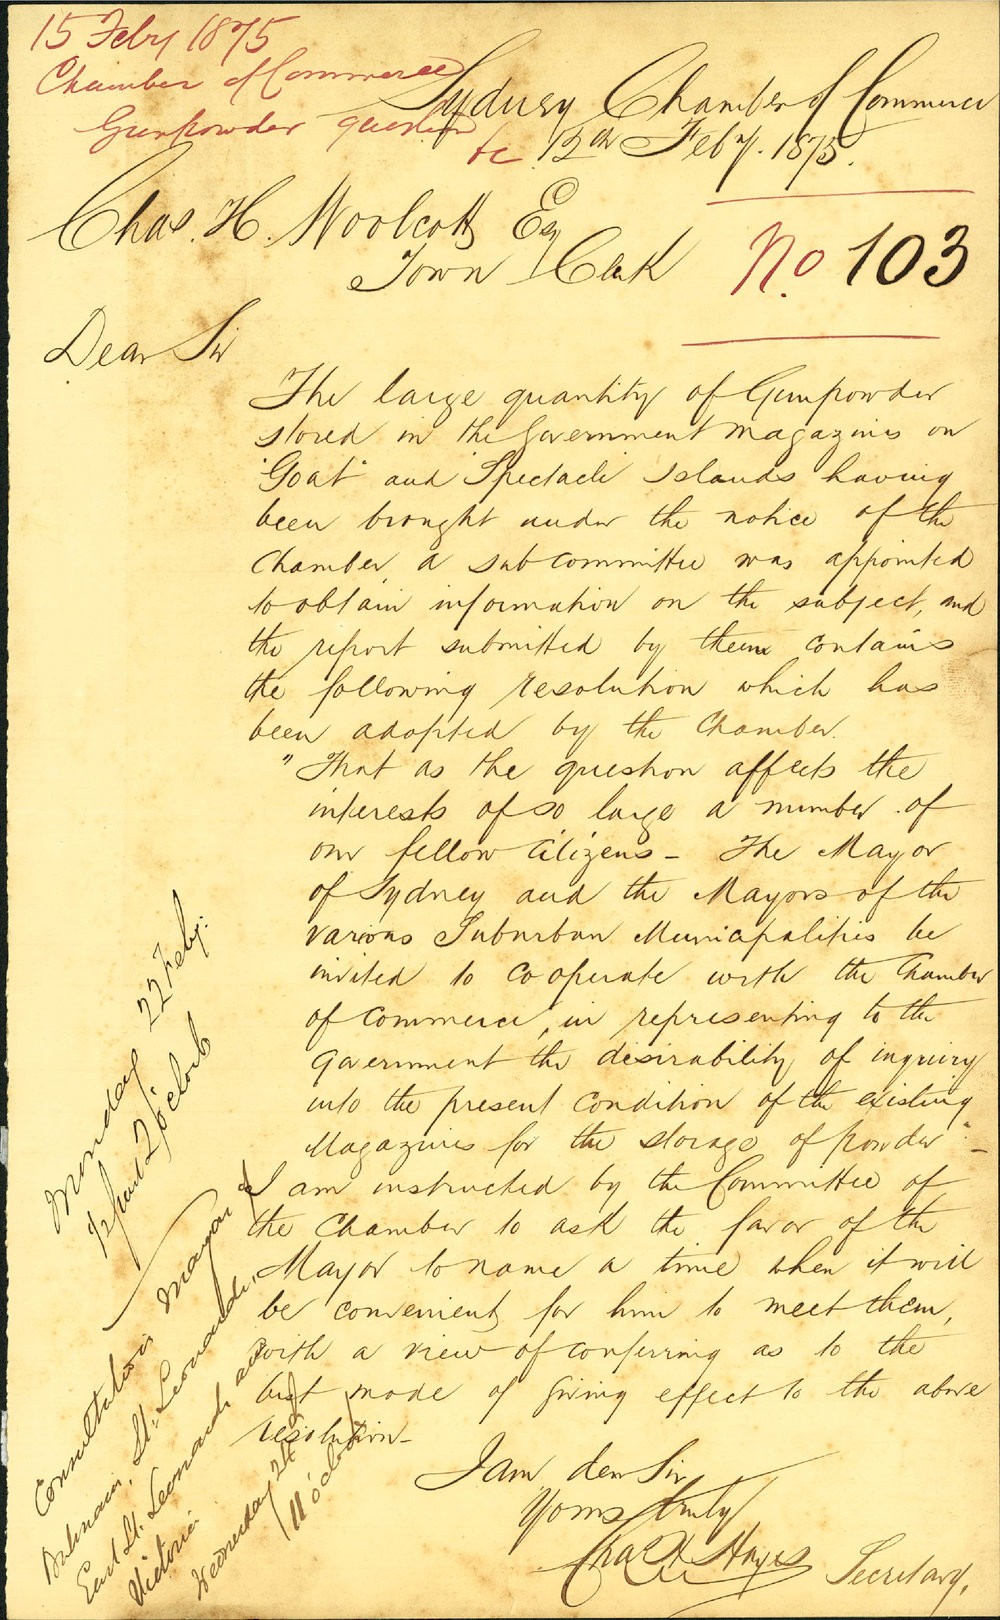 15 Feby 1875
Chamber of Commerce
Gunpowder question
&c
Sydney Chamber of Commerce
12th Feby. 1875.
No 103
Chas. H. Woolcott Esq
Town Clerk
Dear Sir
The large quantity of Gunpowder
stored in the Government magazines on
"Goat" and "Spectacle" Islands having
been brought under the notice of the
Chamber, a subcommittee was appointed
to obtain information on the subject, and
the report submitted by them contains
the following resolution which has
been adopted by the Chamber.
"That as the question affects the
interests of so large a number of
our fellow Citizens - The Mayor
of Sydney and the Mayors of the
various Suburban Municipalities be
invited to cooperate with the Chamber
of Commerce, in representing to the
Government the desirability of inquiry
into the present condition of the existing
Magazines for the storage of powder" -
I am instructed by the Committee of
the Chamber to ask the favor of the
Mayor to name a time when it will
be convenient for him to meet them,
with a view of conferring as to the
best mode of giving effect to the above
resolution -
I am dear Sir
Yours truly
Chas H Hayes
Secretary.
Monday 22 Feby.
½ past 2 o'clock
Consultation Mayor of
Balmain, St. Leonards,
East St. Leonards and
Victoria
Wednesday 24
11 o'clock